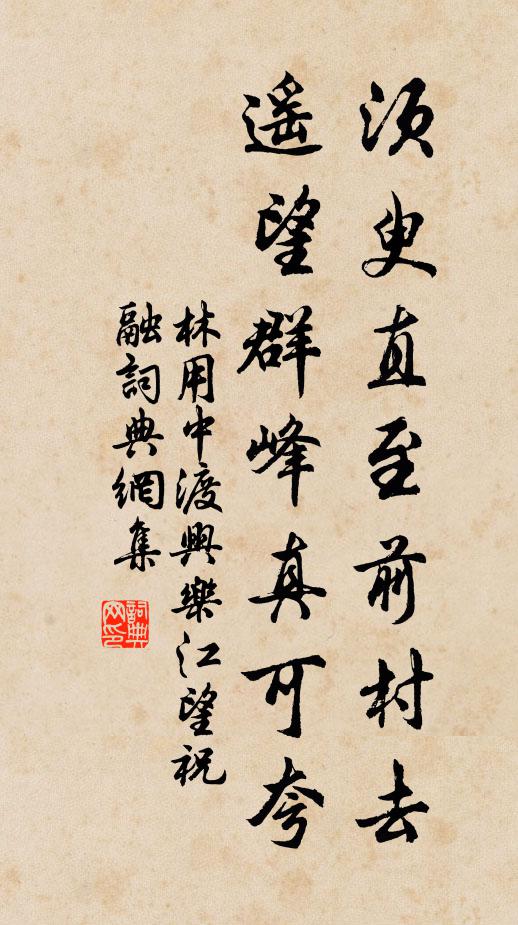 須臾直至前村去
遙望群峰真可夸
林用中渡興樂江望祝
融詞典網集
詞典
网印